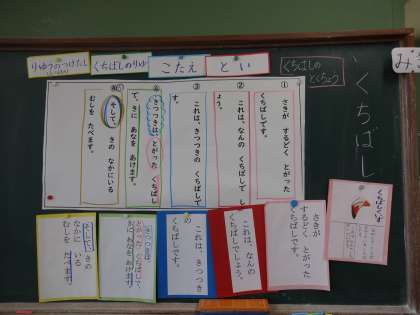 くちばし
み
くちばしの
とくちょう
とい
こたえ
くちばしのりゆう
りゆうのつけたし
①
さきが するどく とがった
くちばしです。
②
これは、なんの くちばしでし
ょう。
③
これは、きつつきの くちばしで
す。
④
きつつきは、とがった くちばし
で、きに あなを あけます。
そして、 きの なかにいる
むしを たべます。
くちばしくいず
さきが
するどく とがった
くちばしです。
これは、なんの
くちばしでしょう。
これは、きつつき
の
くちばしです。
とがった くちばしで、
きに あなを あけます。
そして、きの
なかに いる
むしを たべます。